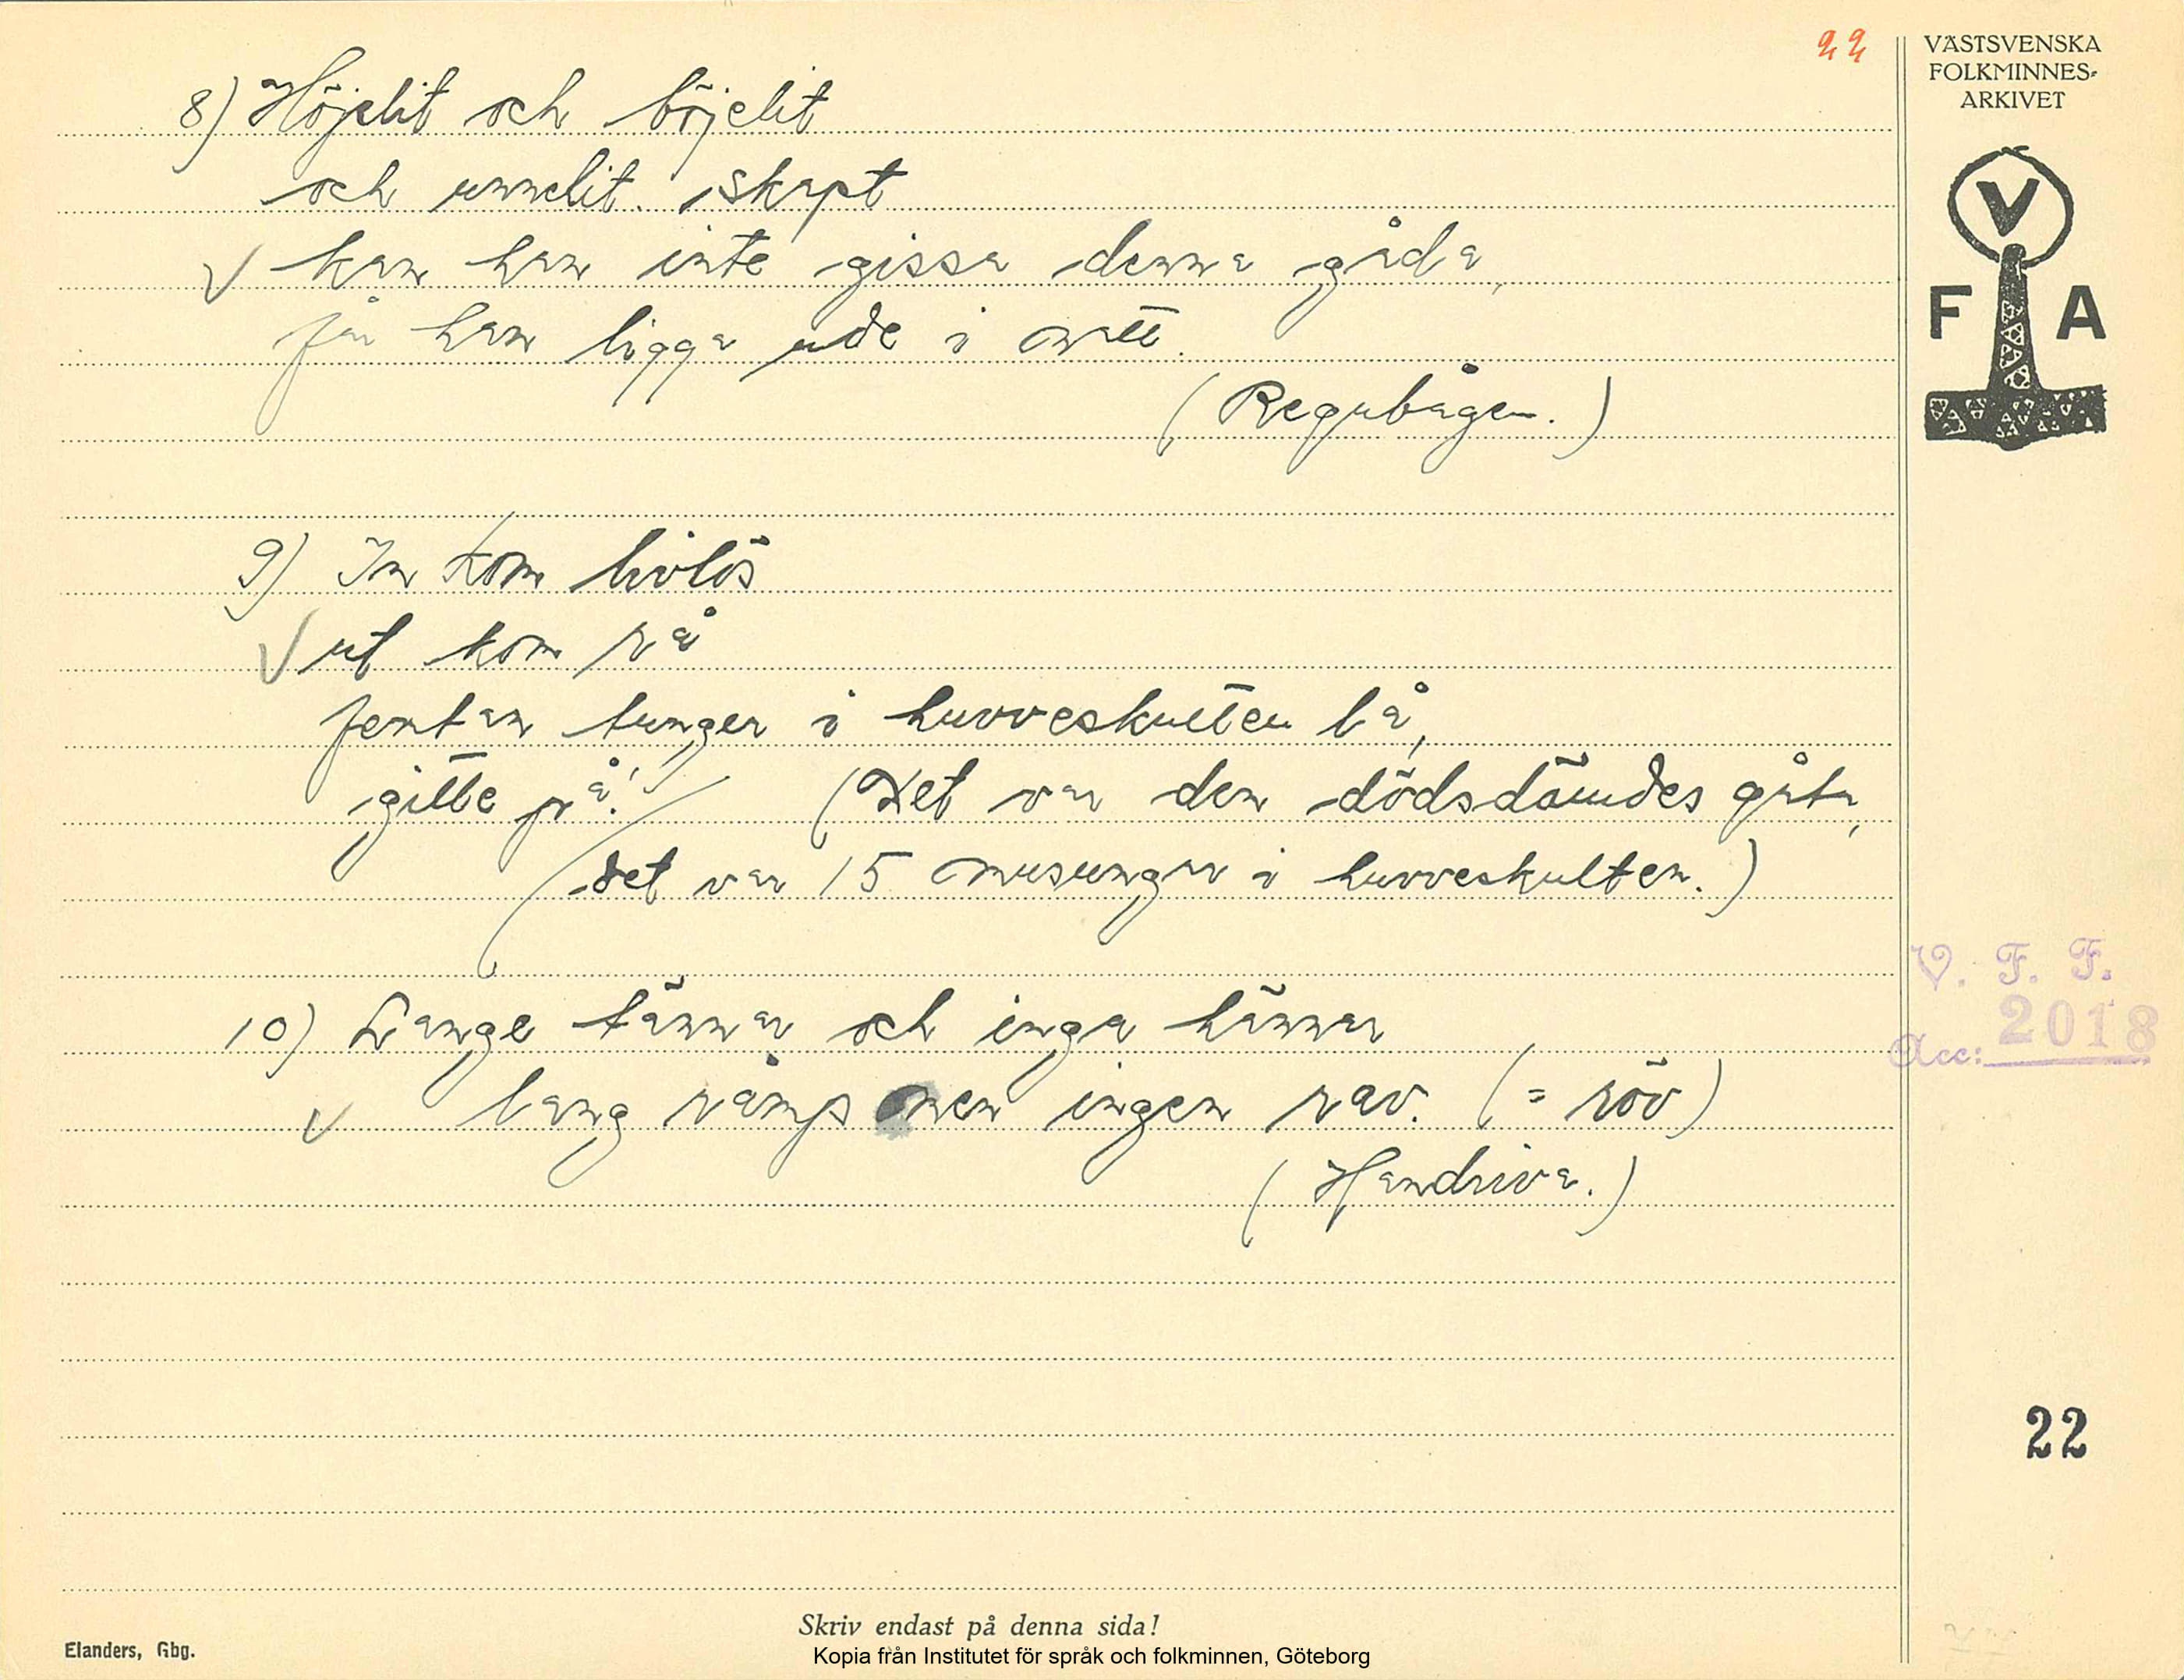 22
VÄSTSVENSKA
FOLKMINNES-
ARKIVET
V
F A
8) Höjelit och böjelit
och unnelit skapt
√ kan han inte gissa denna gåda,
får han ligga ude i natt.
(Regnbågen.)
9) In kom livlös
√ ut kom rå
femtan tunger i huvveskulten lå,
gilte på! (Det var den dödsdömdes gåta,
det var 15 musungar i huvveskulten.)
10) Lange tännar och inga hännar
√ lang råmp men ingen rav. (= röv)
(Handriva.)
V. F. F.
Acc: 2018
22
Skriv endast på denna sida!
Elanders, Gbg.
Kopia från Institutet för språk och folkminnen, Göteborg